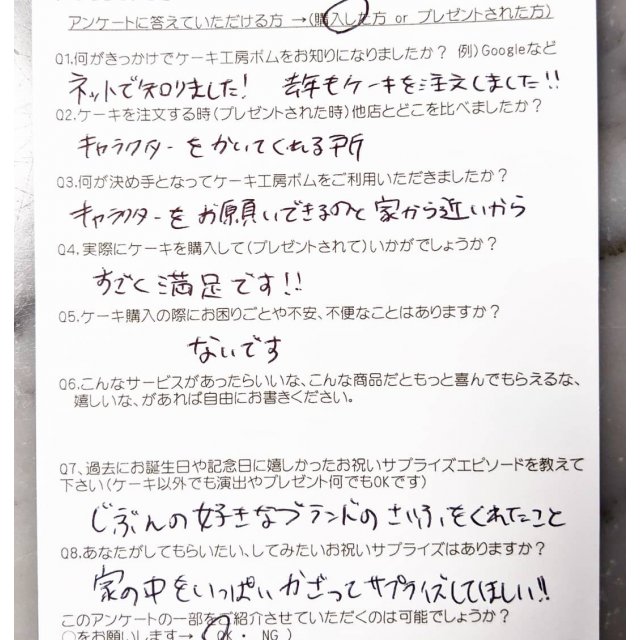 アンケートに答えていただける方 →(購入した方 or プレゼントされた方)
Q1.何がきっかけでケーキ工房ボムをお知りになりましたか？ 例)Googleなど
ネットで知りました! 去年もケーキを注文しました!!
Q2.ケーキを注文する時(プレゼントされた時)他店とどこを比べましたか？
キャラクターをかいてくれる所
Q3.何が決め手となってケーキ工房ボムをご利用いただきましたか？
キャラクターをお願いできるのと家から近いから
Q4.実際にケーキを購入して(プレゼントされて)いかがでしょうか？
すごく満足です!!
Q5.ケーキ購入の際にお困りごとや不安、不便なことはありますか？
ないです
Q6.こんなサービスがあったらいいな、こんな商品だともっと喜んでもらえるな、
嬉しいな、があれば自由にお書きください。
Q7、過去にお誕生日や記念日に嬉しかったお祝いサプライズエピソードを教えて
下さい(ケーキ以外でも演出やプレゼント何でもOKです)
じぶんの好きなブランドのさいふをくれたこと
Q8.あなたがしてもらいたい、してみたいお祝いサプライズはありますか？
家の中をいっぱいかざってサプライズしてほしい!!
このアンケートの一部をご紹介させていただくのは可能でしょうか？
○をお願いします→ (OK ・ NG )